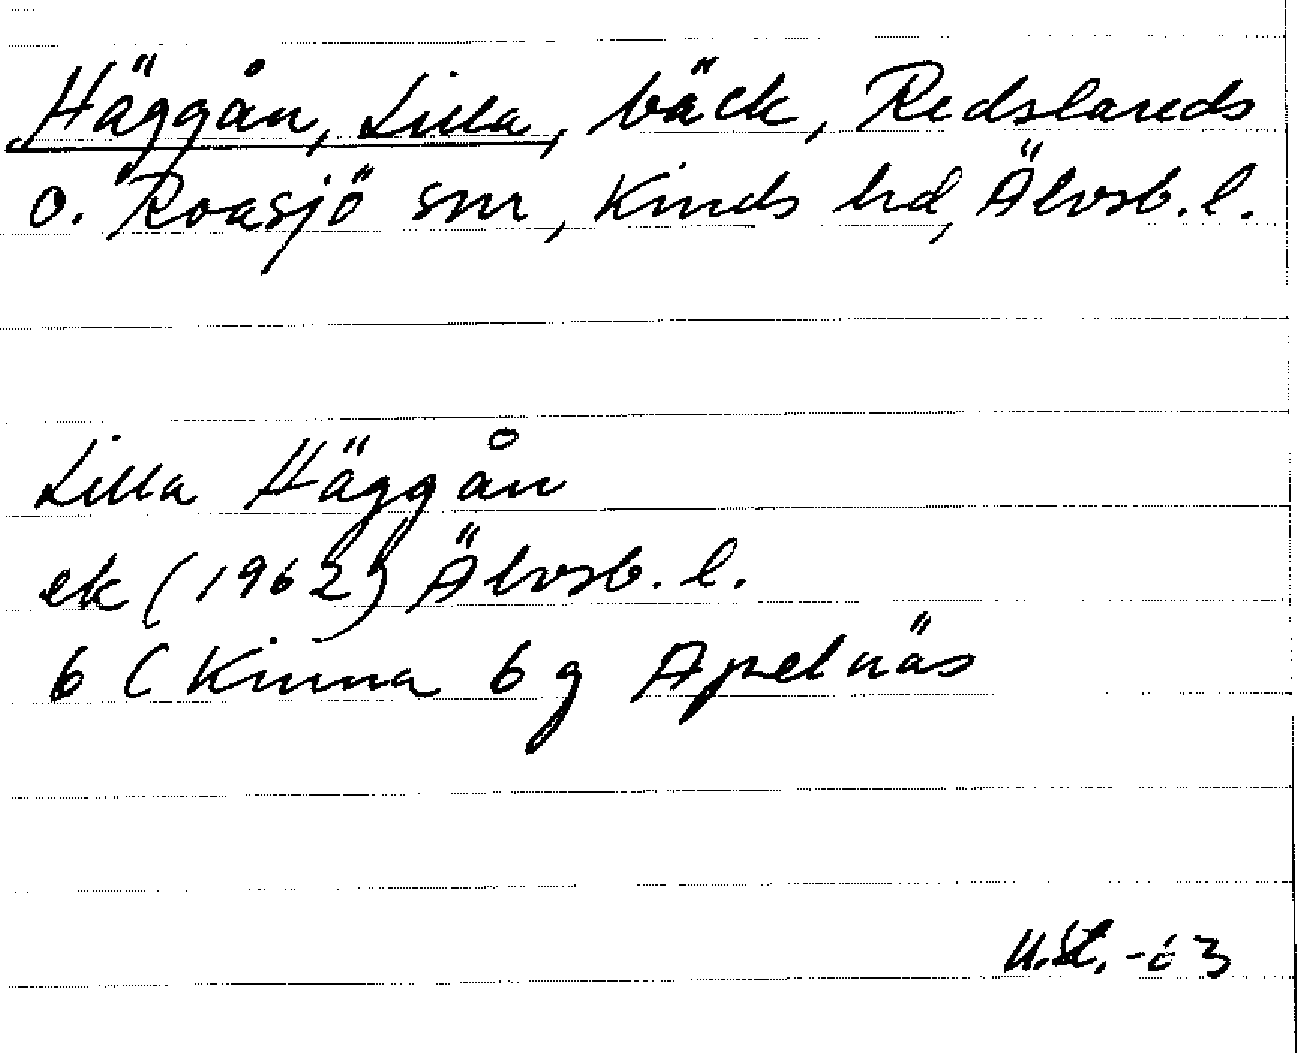 Häggån, Lilla, bäck, Redslareds
o. Roasjö snr, Kinds hd, Älvsb. l.
Lilla Häggån
ek (1962) Älvsb. l.
6 (Kinna 6 g Apelnäs
-63